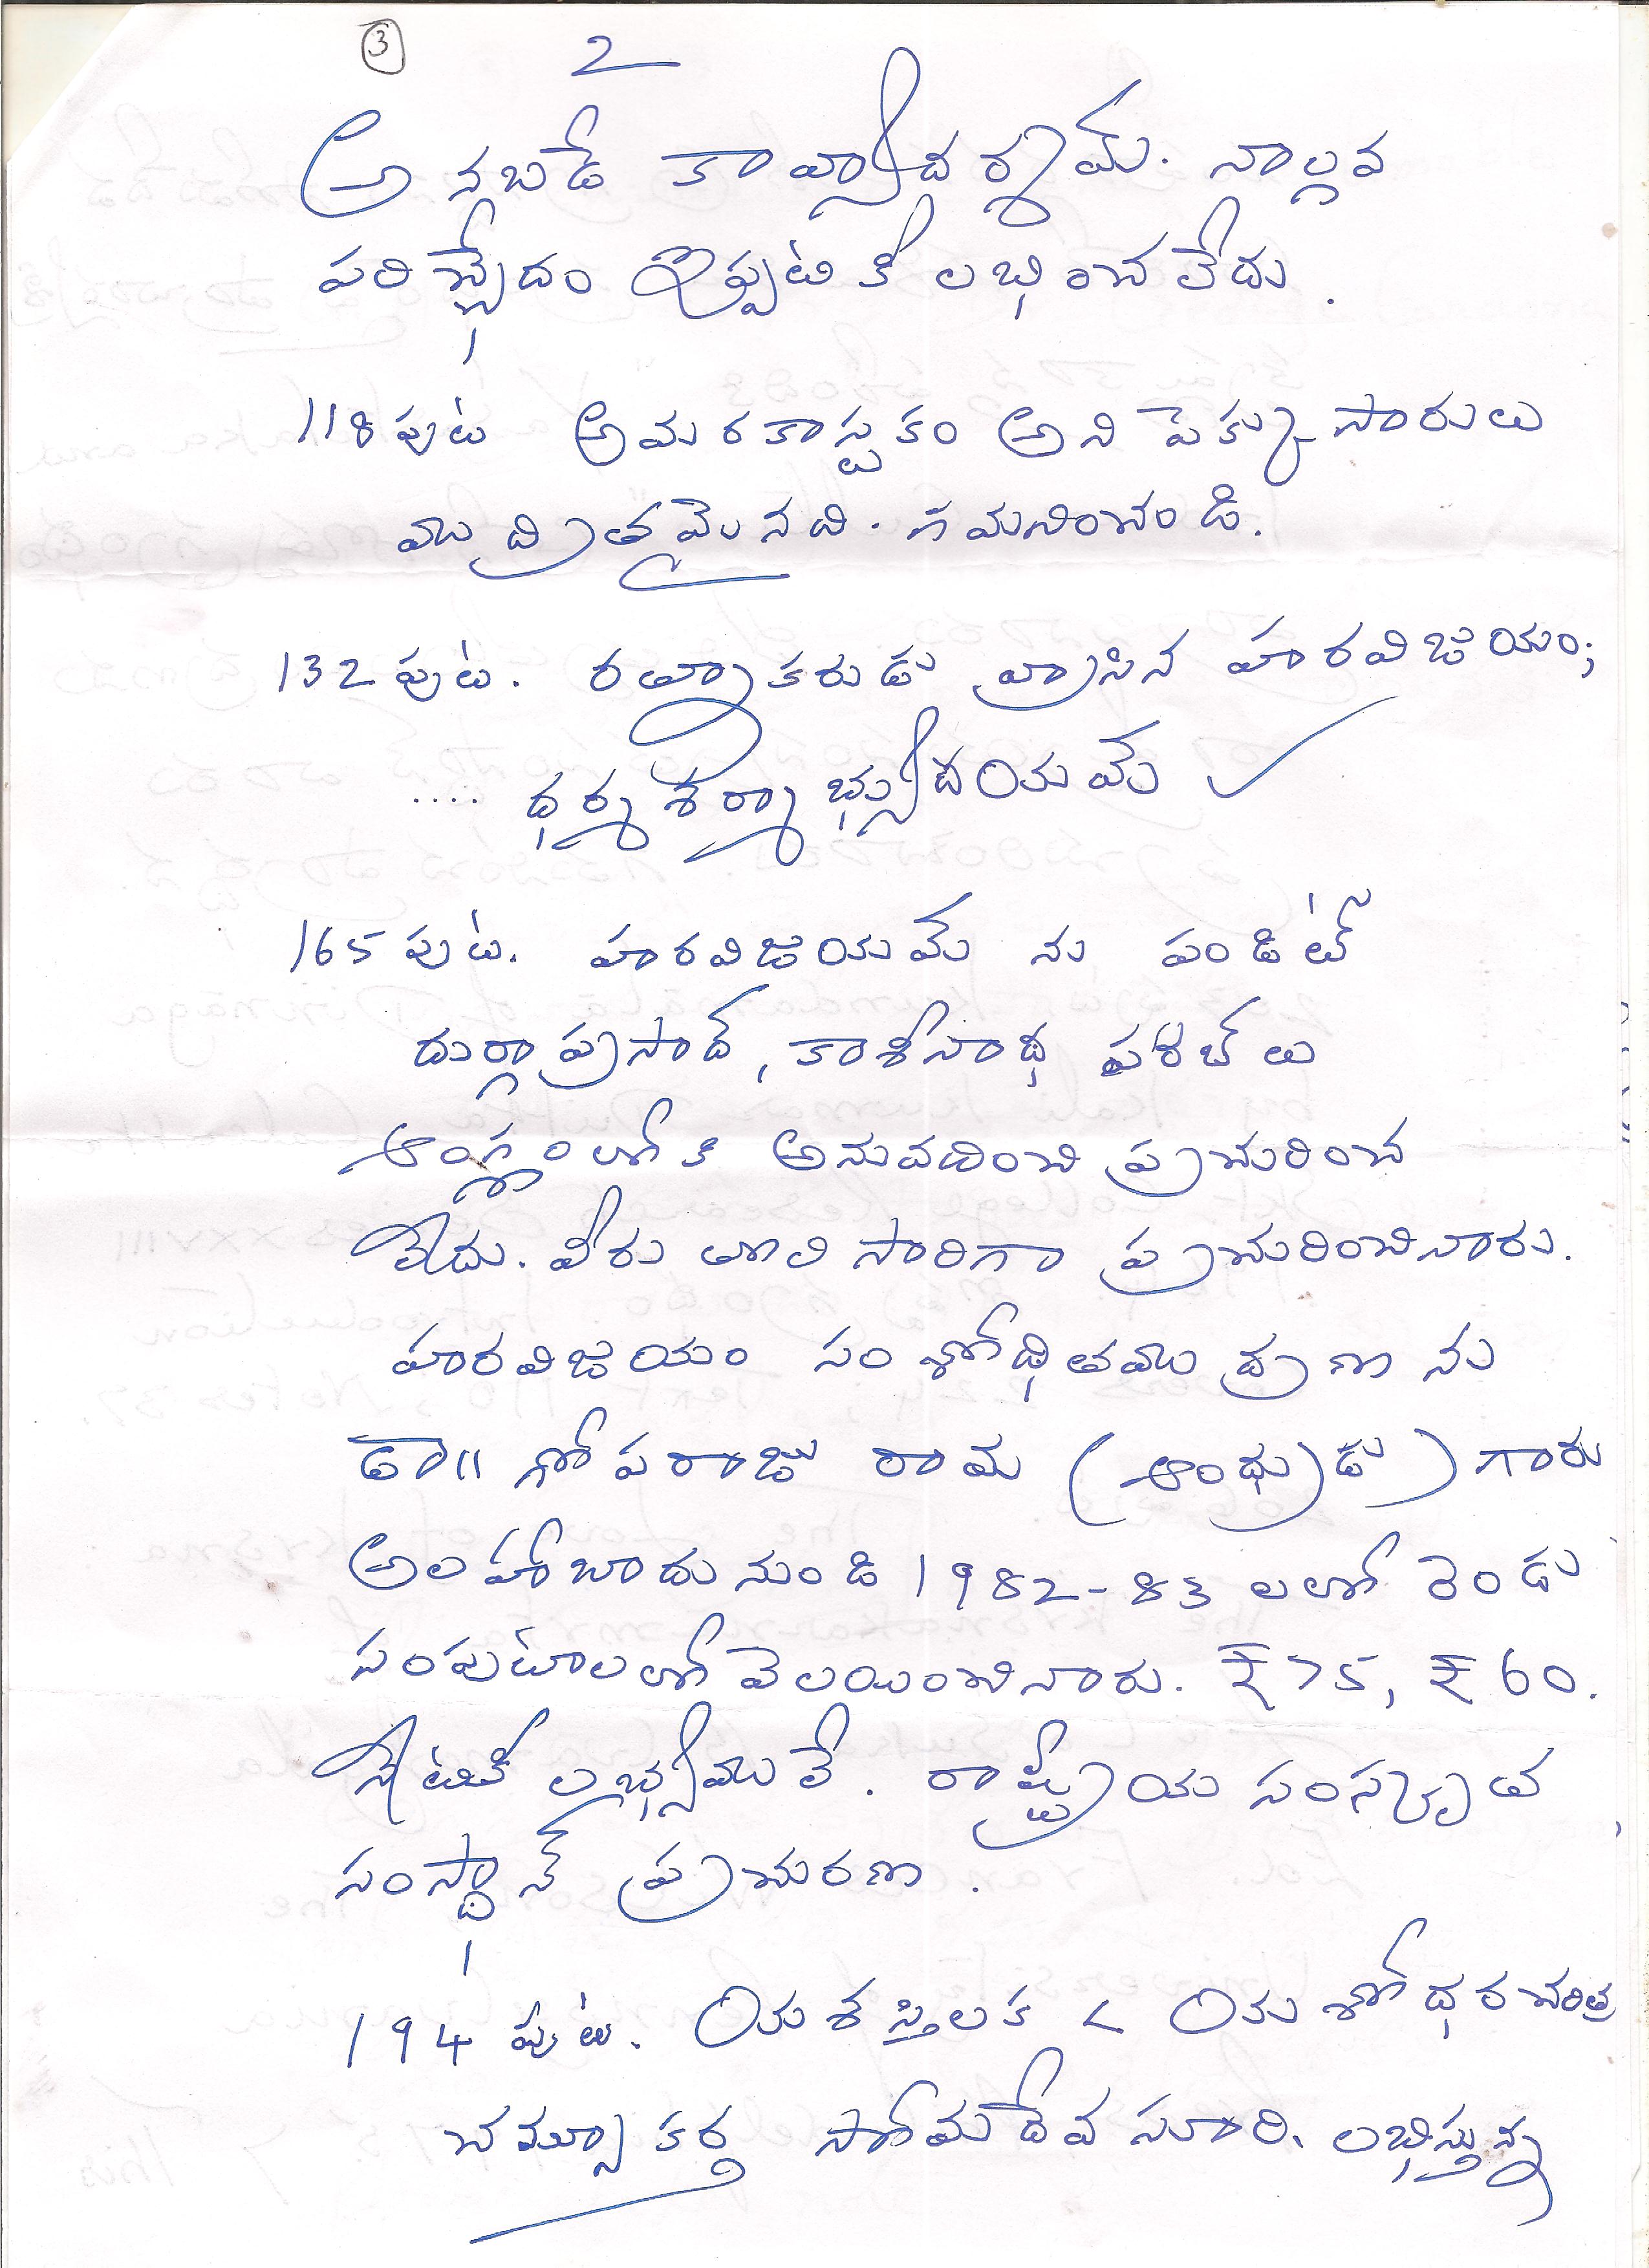 3
2
అనబడే కావ్యాదర్శమ్. నాల్గవ
పరిచ్ఛేదం ఇప్పటికీ లభించలేదు.
118 పుట అమరకాష్టకం అని పెక్కుసారులు
ముద్రితమైనది. గమనించండి.
132 పుట. రత్నాకరుడు వ్రాసిన హరవిజయం;
.... ధర్మశర్మాభ్యుదయమే ✓
165 పుట. హరవిజయమే ను పండిట్
దుర్గాప్రసాద్, కాశీనాథ పరబ్ లు
ఆంగ్లంలోకి అనువదించి ప్రచురించ
లేదు. వీరు తొలిసారిగా ప్రచురించినారు.
హరవిజయం సంశోధితముద్రణ ను
డా॥ గోపరాజు రామ (ఆంధ్రుడు) గారు
అలహాబాదునుండి 1982-83 లలో రెండు
సంపుటాలలో వెలయించినారు. ₹75, ₹60.
నేటికీ లభ్యములే. రాష్ట్రీయ సంస్కృత
సంస్థాన్ ప్రచురణ.
194 పుట. యశస్తిలక < యశోధరచరిత్ర
చమ్పూకర్త సోమదేవసూరి. లభిస్తున్న